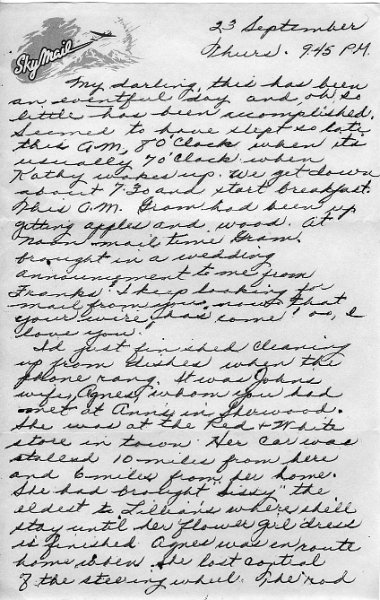 Sky Mail
23 September
Thurs. 9:45 P.M.
My darling, this has been
an eventful day and oh so
little has been accomplished.
Seemed to have slept so late
this A.M, 8 O'Clock when its
usually 7 O'Clock when
Kathy wakes up. We get down
about 7:30 and start breakfast.
This A.M. Gram had been up
getting apples and wood. At
noon mail time Gram
brought in a wedding
announcment to me from
Franks. I keep looking for
mail from you, now that
your wire has come, so, I
love you.
I'd just finished cleaning
up from dishes when the
phone rang. It was Johns
wife, Agnes, whom you had
met at Anns in Sherwood.
She was at the Red + White
store in town. Her car was
stalled 10 miles from here
and 6 miles from her home.
She had brought Sissy "the
eldest to Lillians where she'll
stay until her flower girl dress
is finished. Agnes was in route
home when she lost control
of the steering wheel. The rod